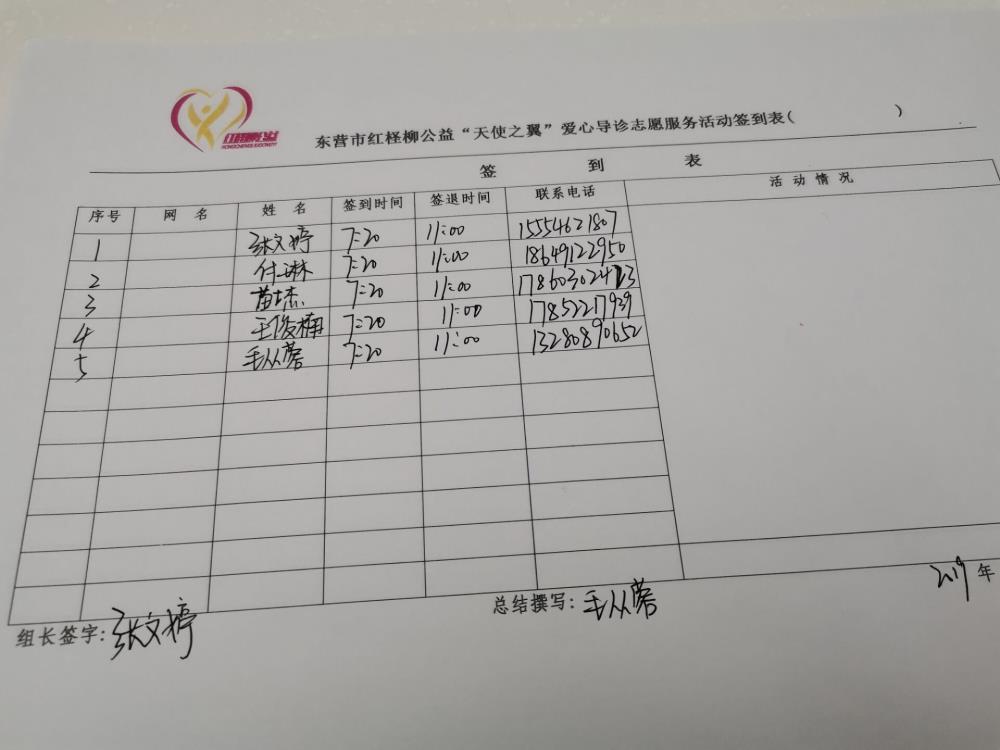 红柽柳公益
东营市红柽柳公益“天使之翼”爱心导诊志愿服务活动签到表( )
签 到 表
序号 网 名 姓 名 签到时间 签退时间 联系电话 活 动 情 况
1 张文婷 7:20 11:00 15554621807
2 付琳 7:20 11:00 18649122950
3 苗杰 7:20 11:00
4 王俊楠 7:20 11:00 17852217939
5 毛从蓉 7:20 11:00 13280890652
组长签字: 张文婷 总结撰写: 毛从蓉 2019 年